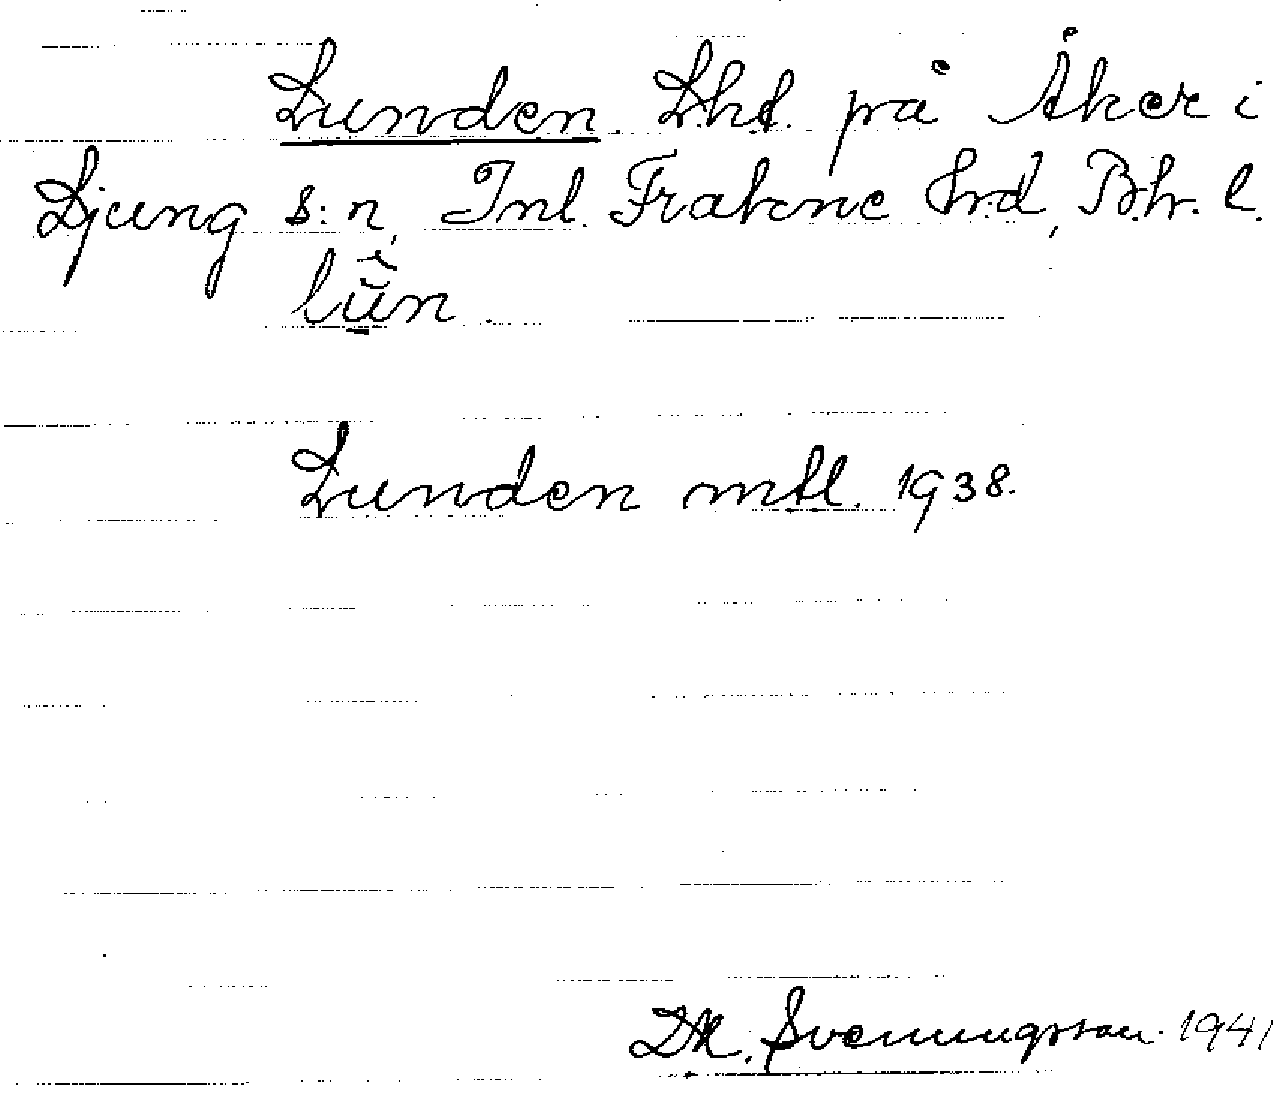 Lunden Lht. på Åker i
Ljung s:n, Inl. Frakne Hrd, Bhr. l.
Lunden mtl. 1938.
Svenningsson 1941